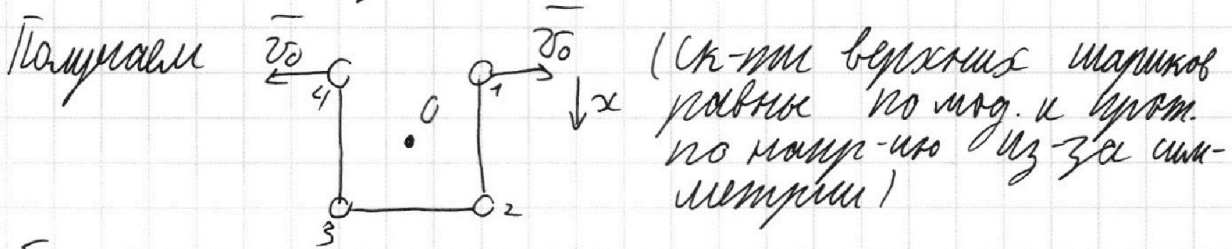 Получаем v̄₀ v̄₀ (Ск-ти верхних шариков
4 1 O x равны по мод. и прот.
по напр-ию из-за сим-
3 2 метрии)